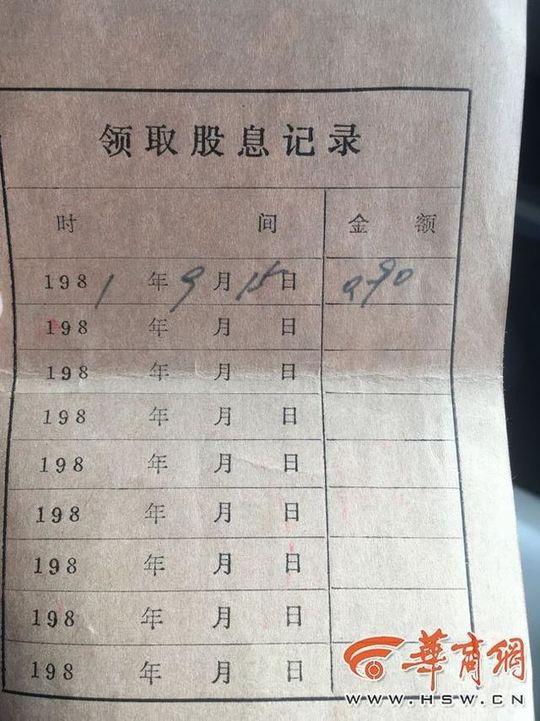 领取股息记录
时 间 金 额
1981 年 9 月 15 日 990
198 年 月 日
198 年 月 日
198 年 月 日
198 年 月 日
198 年 月 日
198 年 月 日
198 年 月 日
198 年 月 日
华商网
WWW.HSW.CN